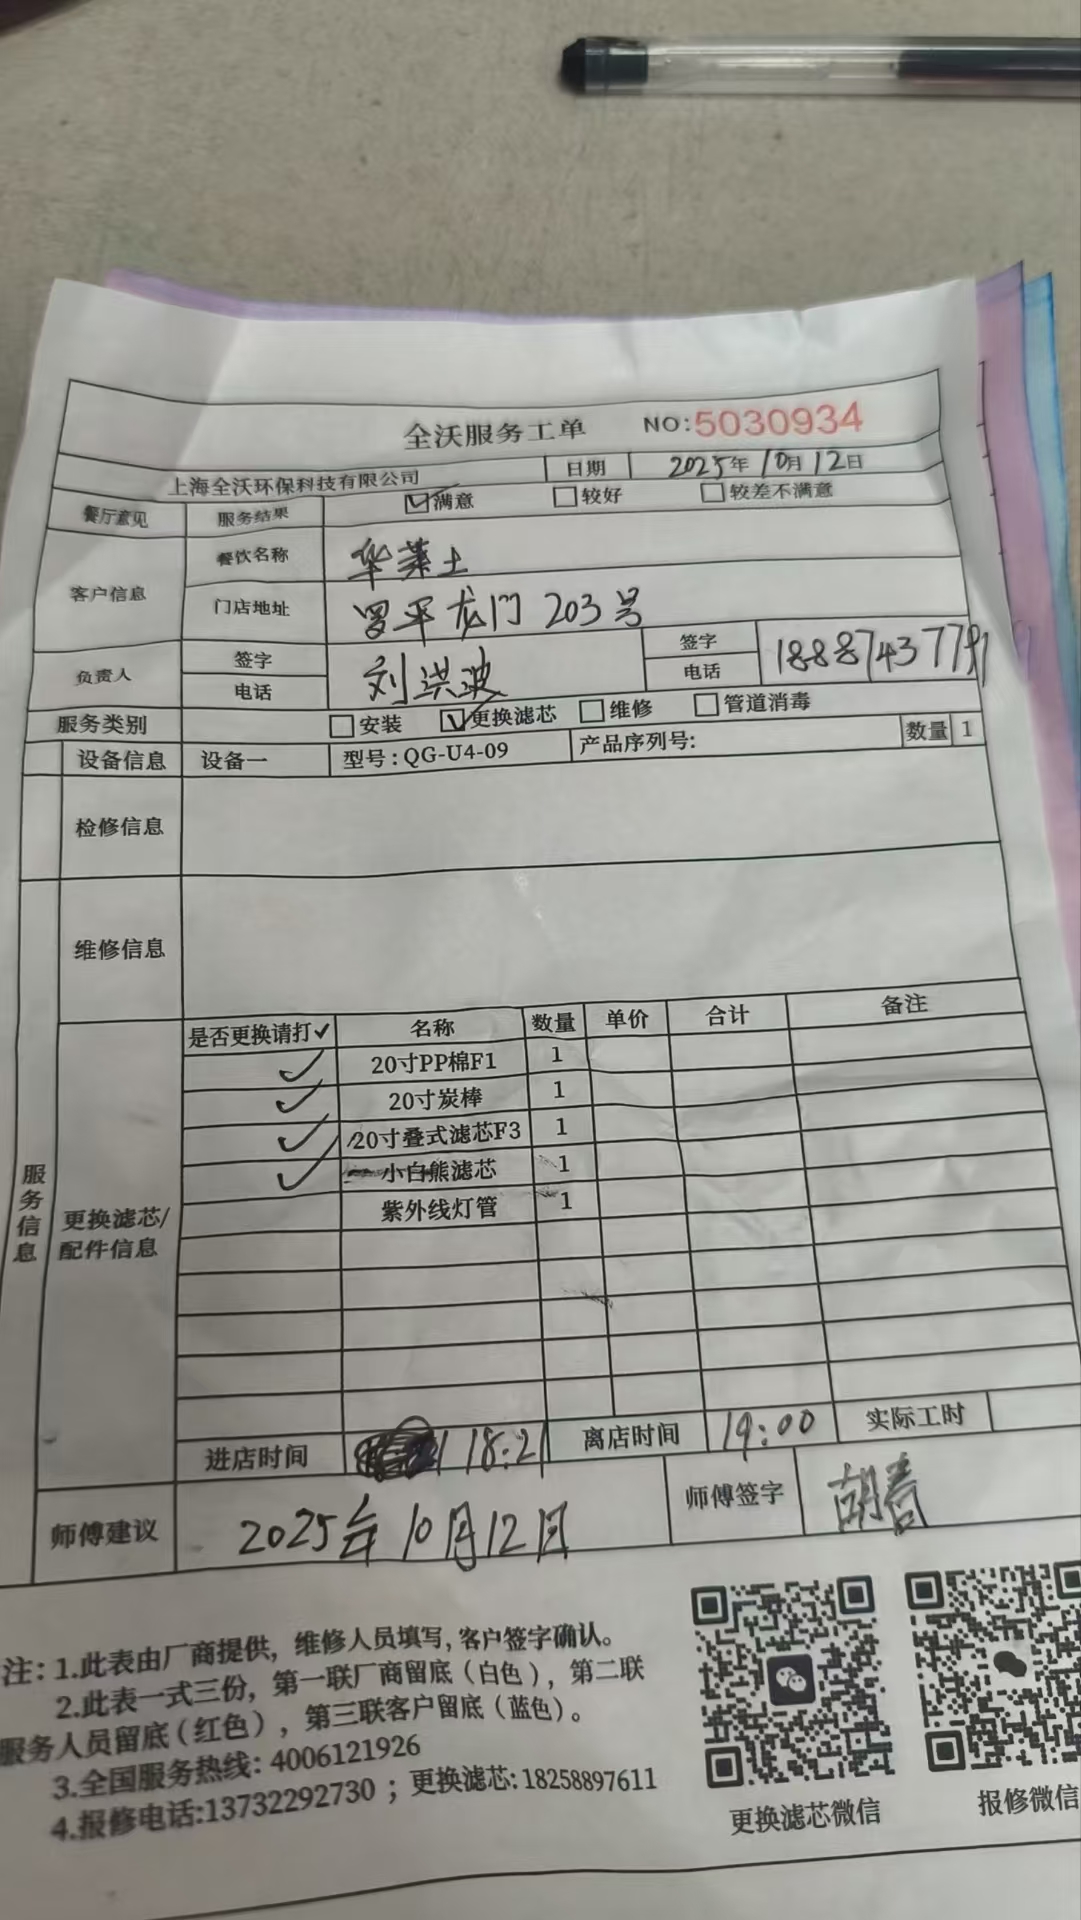 全沃服务工单 NO:5030934
上海全沃环保科技有限公司 日期 2025年10月12日
餐厅意见 服务结果 ☑满意 □较好 □较差不满意
客户信息 餐饮名称 华莱士
门店地址 罗平龙门203号
负责人 签字 电话 刘洪波 签字 电话
服务类别 □安装 ☑更换滤芯 □维修 □管道消毒
设备信息 设备一 型号:QG-U4-09 产品序列号: 数量 1
检修信息
维修信息
服务信息
更换滤芯/配件信息
是否更换请打✓ 名称 数量 单价 合计 备注
✓ 20寸PP棉F1 1
✓ 20寸炭棒 1
✓ 20寸叠式滤芯F3 1
✓ 小白熊滤芯 1
紫外线灯管 1
进店时间 18:21 离店时间 19:00 实际工时
师傅建议 2025年10月12日 师傅签字
注: 1.此表由厂商提供, 维修人员填写, 客户签字确认。
2.此表一式三份, 第一联厂商留底(白色), 第二联
服务人员留底(红色), 第三联客户留底(蓝色)。
3.全国服务热线: 4006121926
4.报修电话:13732292730 ; 更换滤芯: 18258897611
更换滤芯微信
报修微信